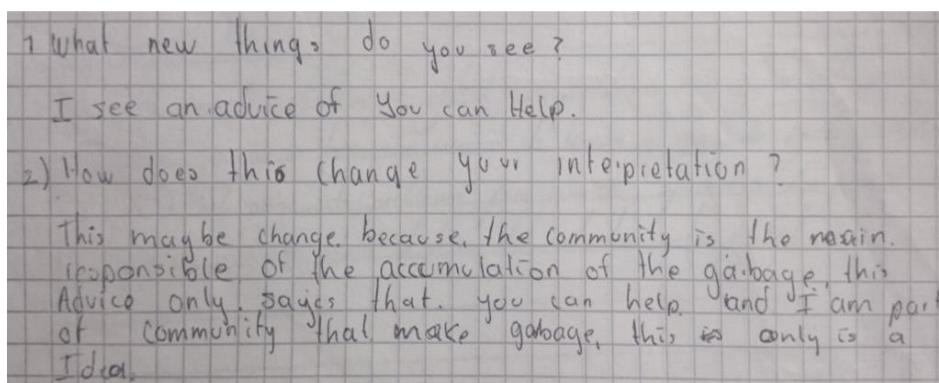 1 What new things do you see?
I see an advice of You can Help.
2) How does this change your interpretation?
This maybe change. because, the community is the main.
responsible of the accumulation of the gabage, this
Advice only. sayds that. you can help. and I am part
of community that make gabage, this only is a
Idea.